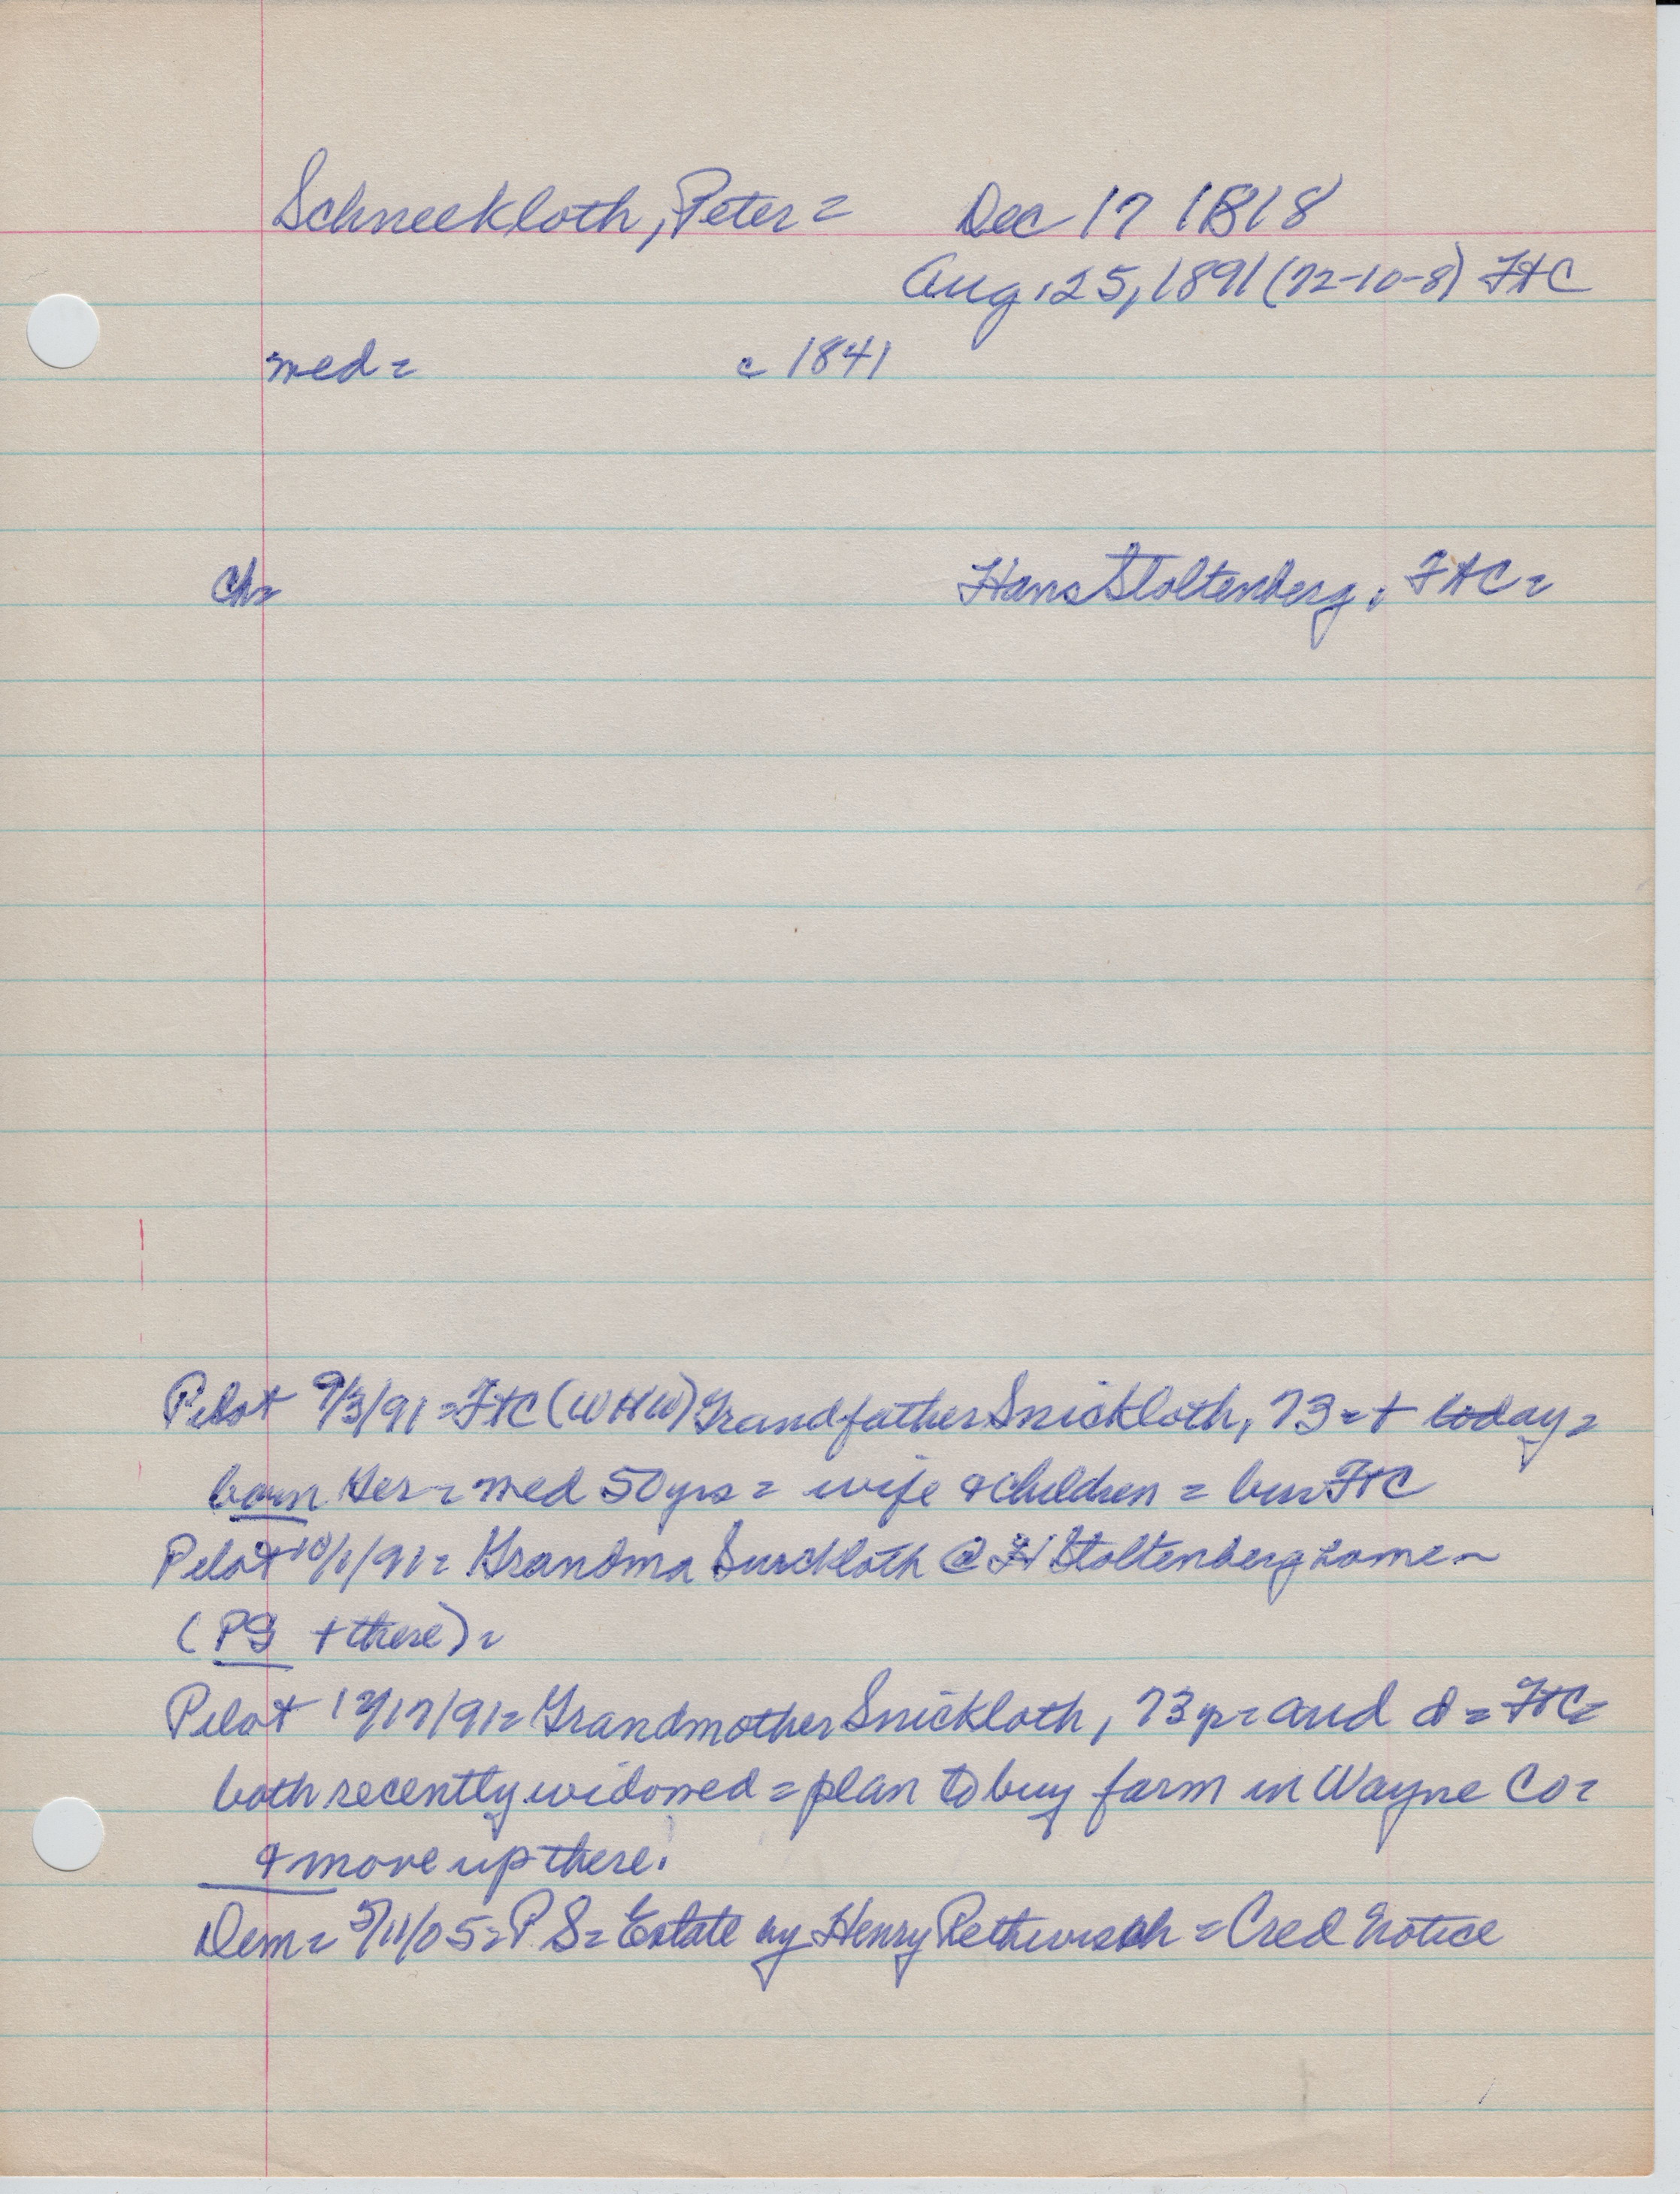 Schneekloth, Peter = Dec 17 1818
Aug. 25, 1891 (72-10-8) FtC
med = c 1841
Ch = Hans Stoltenberg, FtC =
Pilot 9/3/91 = FtC (WHW) Grandfather Snickloth, 73 = + today =
born Ger = med 50 yrs = wife & children = bur FtC
Pilot 10/1/91 = Grandma @ H Stoltenberg home ~
(PS + there) =
Pilot 12/17/91 = Grandmother Snickloth, 73 yr = and d = FtC =
both recently widowed = plan to buy farm in Wayne Co =
& move up there.
Dem = 5/11/05 = PS = Estate by Henry Rethwisch = Cred Notice